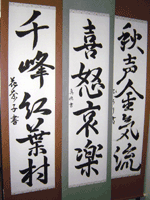 秋声金気流
喜怒哀楽
千峰紅葉村